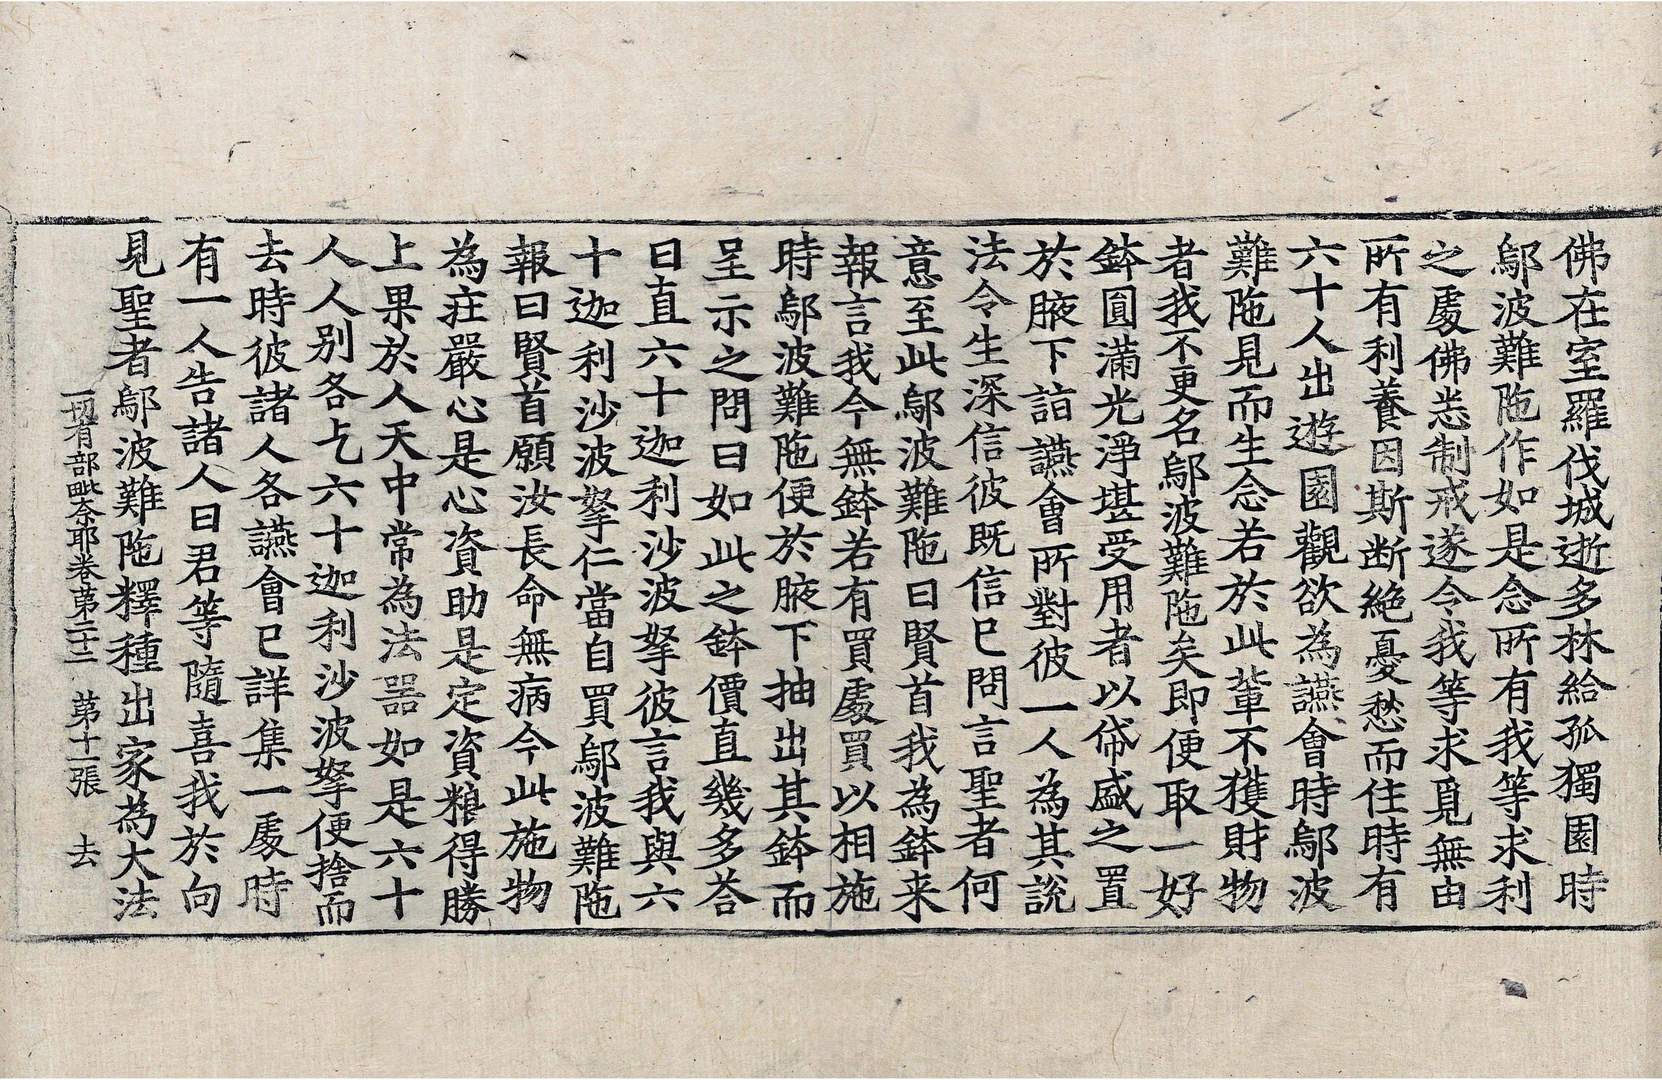 佛在室羅伐城逝多林給孤獨園時
鄔波難陁作如是念所有我等求利
之處佛悉制戒遂令我等求覓無由
所有利養因斯断絶憂愁而住時有
六十人出遊園觀欲為讌會時鄔波
難陁見而生念若於此輩不獲財物
者我不更名鄔波難陁矣即便取一好
鉢圓滿光淨堪受用者以帒盛之置
於腋下詣讌會所對彼一人為其說
法令生深信彼既信已問言聖者何
意至此鄔波難陁曰賢首我為鉢来
報言我今無鉢若有買處買以相施
時鄔波難陁便於腋下抽出其鉢而
呈示之問曰如此之鉢價直幾多荅
曰直六十迦利沙波拏彼言我與六
十迦利沙波拏仁當自買鄔波難陁
報曰賢首願汝長命無病今此施物
為莊嚴心是心資助是定資粮得勝
上果於人天中常為法器如是六十
人人别各乞六十迦利沙波拏便捨而
去時彼諸人各讌會已詳集一處時
有一人告諸人曰君等隨喜我於向
見聖者鄔波難陁釋種出家為大法
一切有部毗奈耶卷第二十二　第十一張　去